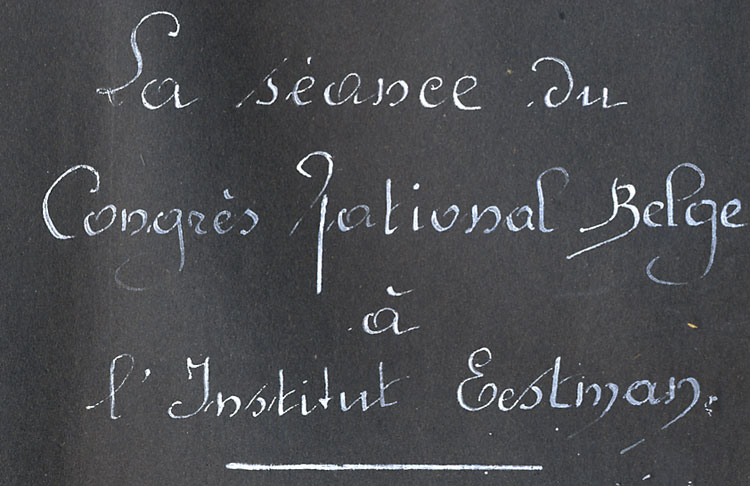 La séance du
Congrès National Belge
à
l'Institut Eestman.